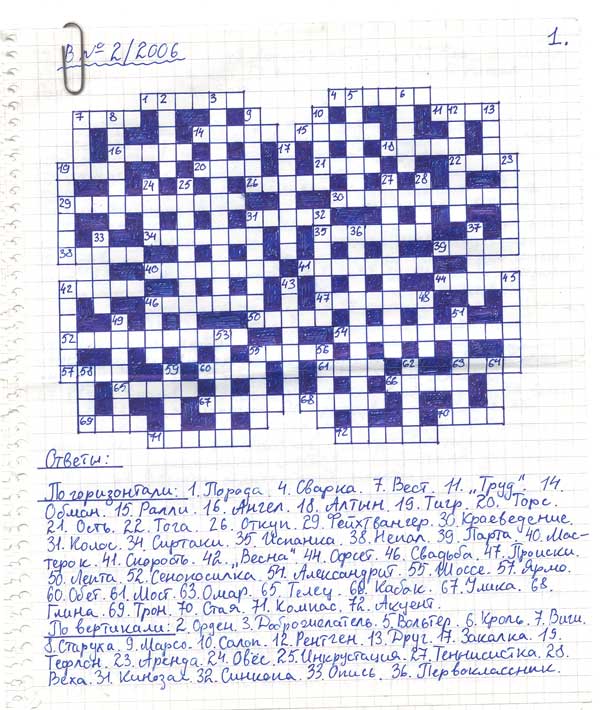 В №2/2006
1.
1 2 3 4 5 6
7 8 9 10 11 12 13
14 15
16 17 18
19 20 21 22 23
24 25 26 27 28
29 30
31 32
33 34 35 36 37
38 39
40 41
42 43 44 45
46 47 48
49 50 51
52 53 54
55 56
57 58 59 60 61 62 63 64
65 66
67 68
69 70
71 72
Ответы:
По горизонтали: 1. Порода. 4. Сварка. 7. Вест. 11. „Труд". 14.
Обман. 15. Ралли. 16. Ангел. 18. Алтын. 19. Тигр. 20. Торс.
21. Ость. 22. Тога. 26. Откуп. 29. Фейхтвангер. 30. Краеведение.
31. Колос. 34. Сиртаки. 35. Испанка. 38. Непал. 39. Парта. 40. Мас-
терок. 41. Скорость. 42. „Весна" 44. Офсет. 46. Свадьба. 47. Происки.
50. Лента. 52. Сенокосилка. 54. Александрит. 55. Шоссе. 57. Ярмо.
60. Обет. 61. Мост. 63. Омар. 65. Телец. 66. Кабак. 67. Улика. 68.
Глина. 69. Трон. 70. Стая. 71. Компас. 72. Акцент.
По вертикали: 2. Орден. 3. Доброжелатель. 5. Вольтер. 6. Кроль. 7. Виши.
8. Старуха. 9. Марсо. 10. Салоп. 12. Рентген. 13. Друг. 17. Закалка. 19.
Тефлон. 23. Аренда. 24. Овёс. 25. Инкрустация. 27. Теннисистка. 28.
Веха. 31. Кинозал. 32. Синкопа. 33. Опись. 36. Первоклассник.